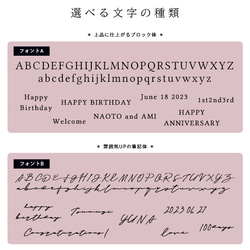 選べる文字の種類
✦ 上品に仕上がるブロック体 ✦
フォントA
ABCDEFGHIJKLMNOPQRSTUVWXYZ
abcdefghijklmnopqrstuvwxyz
Happy Birthday
HAPPY BIRTHDAY
June 18 2023
1st2nd3rd
Welcome
NAOTO and AMI
HAPPY ANNIVERSARY
✦ 雰囲気UPの筆記体 ✦
フォントB
ABCDEFGHIJKLMNOPQRSTUVWXYZ
abcdefghijklmnopqrstuvwxyz
happy birthday
YUNA
2023.06.27
Congratulations!
love
100days